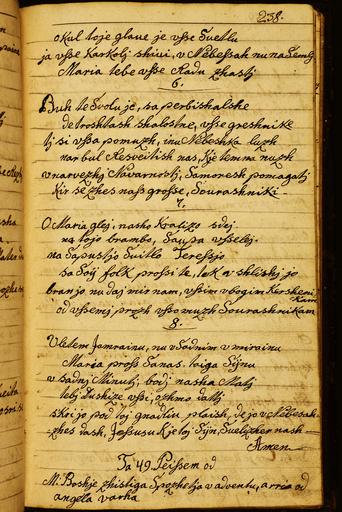 238.
okul toje glave je vsse Svetlu
ja vsse Karkolj shivi, v Nebessah nu na Semlj
Maria tebe vsse Radu zhastj
6.
Buh te Svolu je, sa perbishalshe
de troshtash shalostne, vsse greshnike
tj si vssa pomuzh, inu Nebeshka luzh
nar bul Resveitish nas, kje temna nuzh
v narvezhj Navarnostj, Samoresh pomagatj
kir se zhes nass grosse, Sourashniki -
7.
O Maria glej, nasho Kraizo sdej
na tojo brambo, Saupa vsselej.
na Sapustjo Suitlo Teressjo
sa Soj folk prossi te, lek v shlishi jo
bran jo nu daj mir nam, vssim vbogim Kersheni
kam
od vssemj pruzh vsso muzh Sourashnikam
8.
Vletem Jamrainu, nu vSodnim v mirainu
Maria pross Sa nas. toiga Sijnu
v Sadnj Minutj, bodj nasha Matj
telj Dushize vssi, ozhmo datj
skri je pod toj gnadliu plaish, de jo v Nebesah
zhes dash, Jessusu Kje toj Sijn, Suelizher nash -
Amen
Ta 49 Peissem od
M: Boshje zhistiga Spozhetja v adventu, arzed od
angela varha